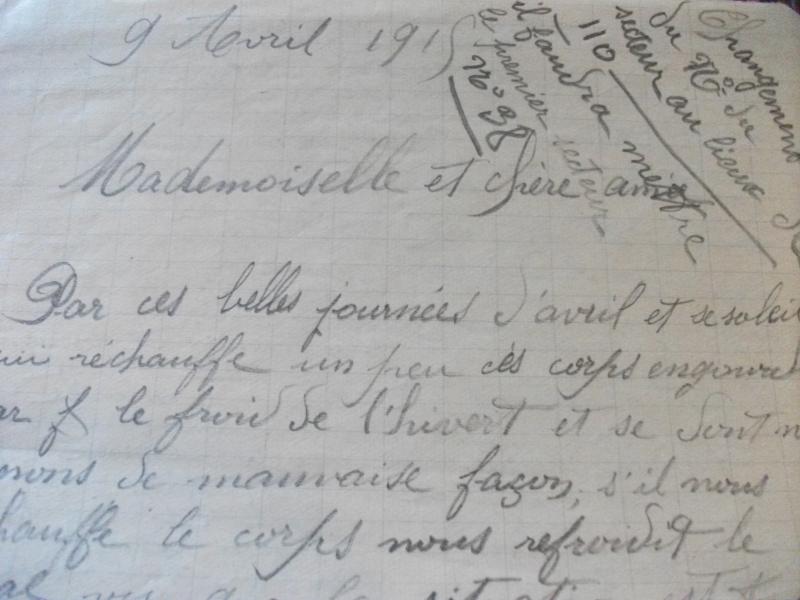 9 Avril 1915
Changement
du No du
secteur au lieux de
110
il faudra mettre
le premier secteur
no 98
Mademoiselle et chère amie
Par ces belles journées d'avril et se soleil
qui réchauffe un peu cès corps engourd
ar le froid de l'hivert et se dont n
mons de mauvaise façon, s'il nous
hauffe le corps nous refroidit le
al vis que la situation est